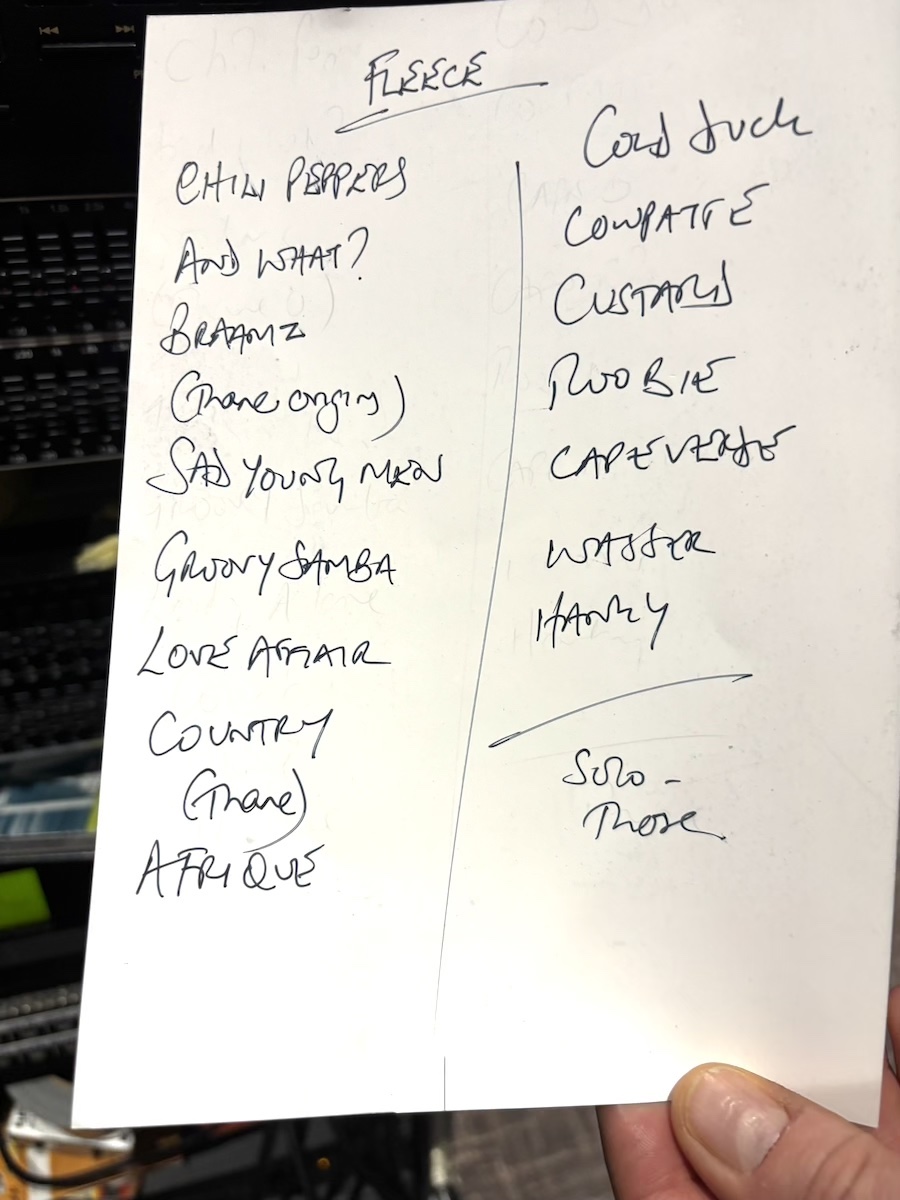 FLEECE
CHILI PEPPERS
AND WHAT?
BRAAMZ
(Thane origins)
SAD YOUNG MEN
GROOVY SAMBA
LOVE AFFAIR
COUNTRY
(Thane)
AFRIQUE
Cold duck
COWPATTE
CUSTARD
ROOBIE
CAPE VERDE
WASSER
HANKY
Solo -
Those